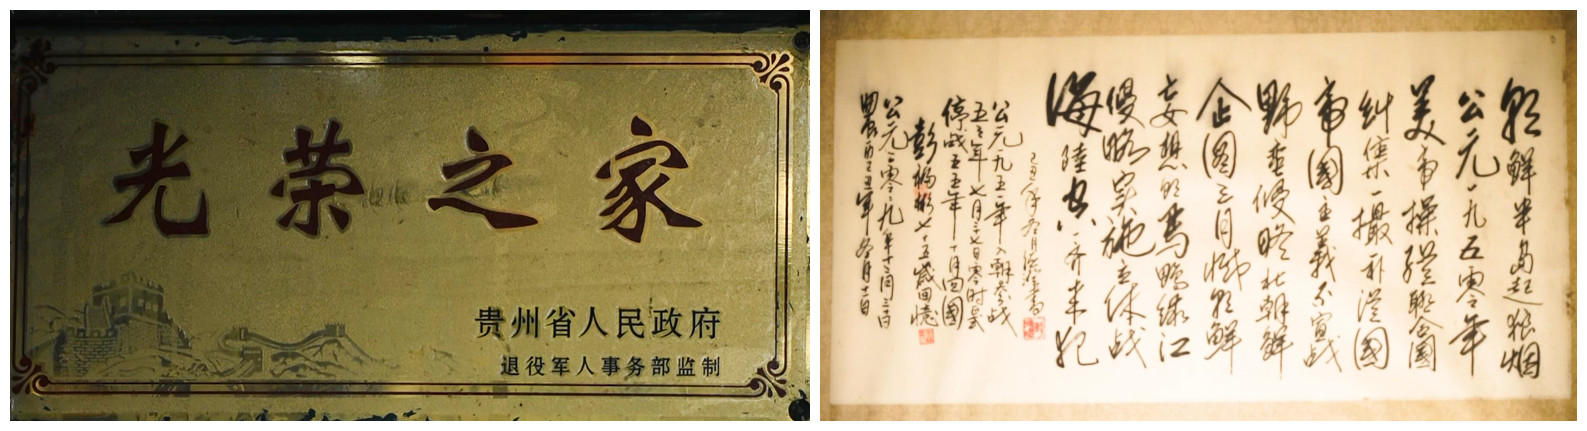 光荣之家
贵州省人民政府
退役军人事务部监制
朝鲜半岛起狼烟
公元一九五零年
美帝操纵联合国
纠集一撮补从国
帝国主义不宣战
野蛮侵略北朝鲜
企图三月灭朝鲜
妄想饮马鸭绿江
侵略实施立体战
海陆空一齐来犯
公元一九五一年入朝参战
五三年七月二十七日零时
停战五五年十月回国
彭福彬七十五岁回忆
公元二零零九年十二月三日